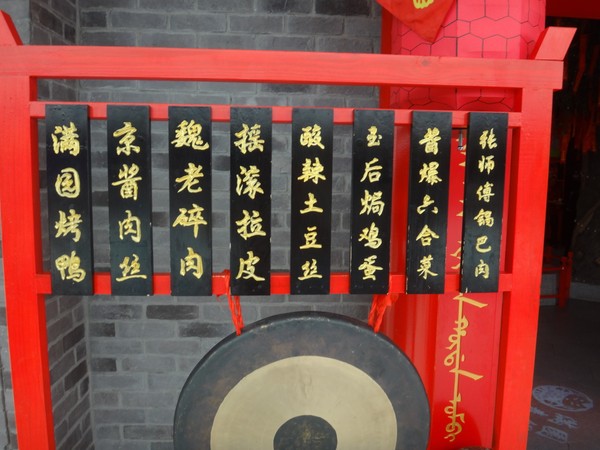 满园烤鸭
京酱肉丝
魏老碎肉
摇滚拉皮
酸辣土豆丝
玉后焗鸡蛋
酱爆六合菜
张师傅锅巴肉